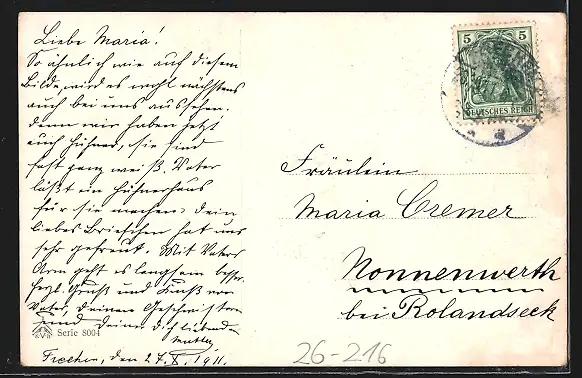 Liebe Maria!
So ähnlich wie auf diesem
Bilde wird es wohl nächstens
auch bei uns aussehen.
denn wir haben jetzt
auch Hühner, sie sind
fast ganz weiß. Vater
läßt ein Hühnerhaus
für sie machen. Dein
liebes Briefchen hat uns
sehr gefreut. Mit Vaters
Arm geht es langsam besser.
Herzl. Gruß und Kuß von
Vater, deinen Geschwistern
und deiner dich liebenden
Mutter
Frechen, den 27.X.1911.
Serie 8004
5 5
DEUTSCHES REICH
Fräulein
Maria Cremer
Nonnenwerth
bei Rolandseck
26-216